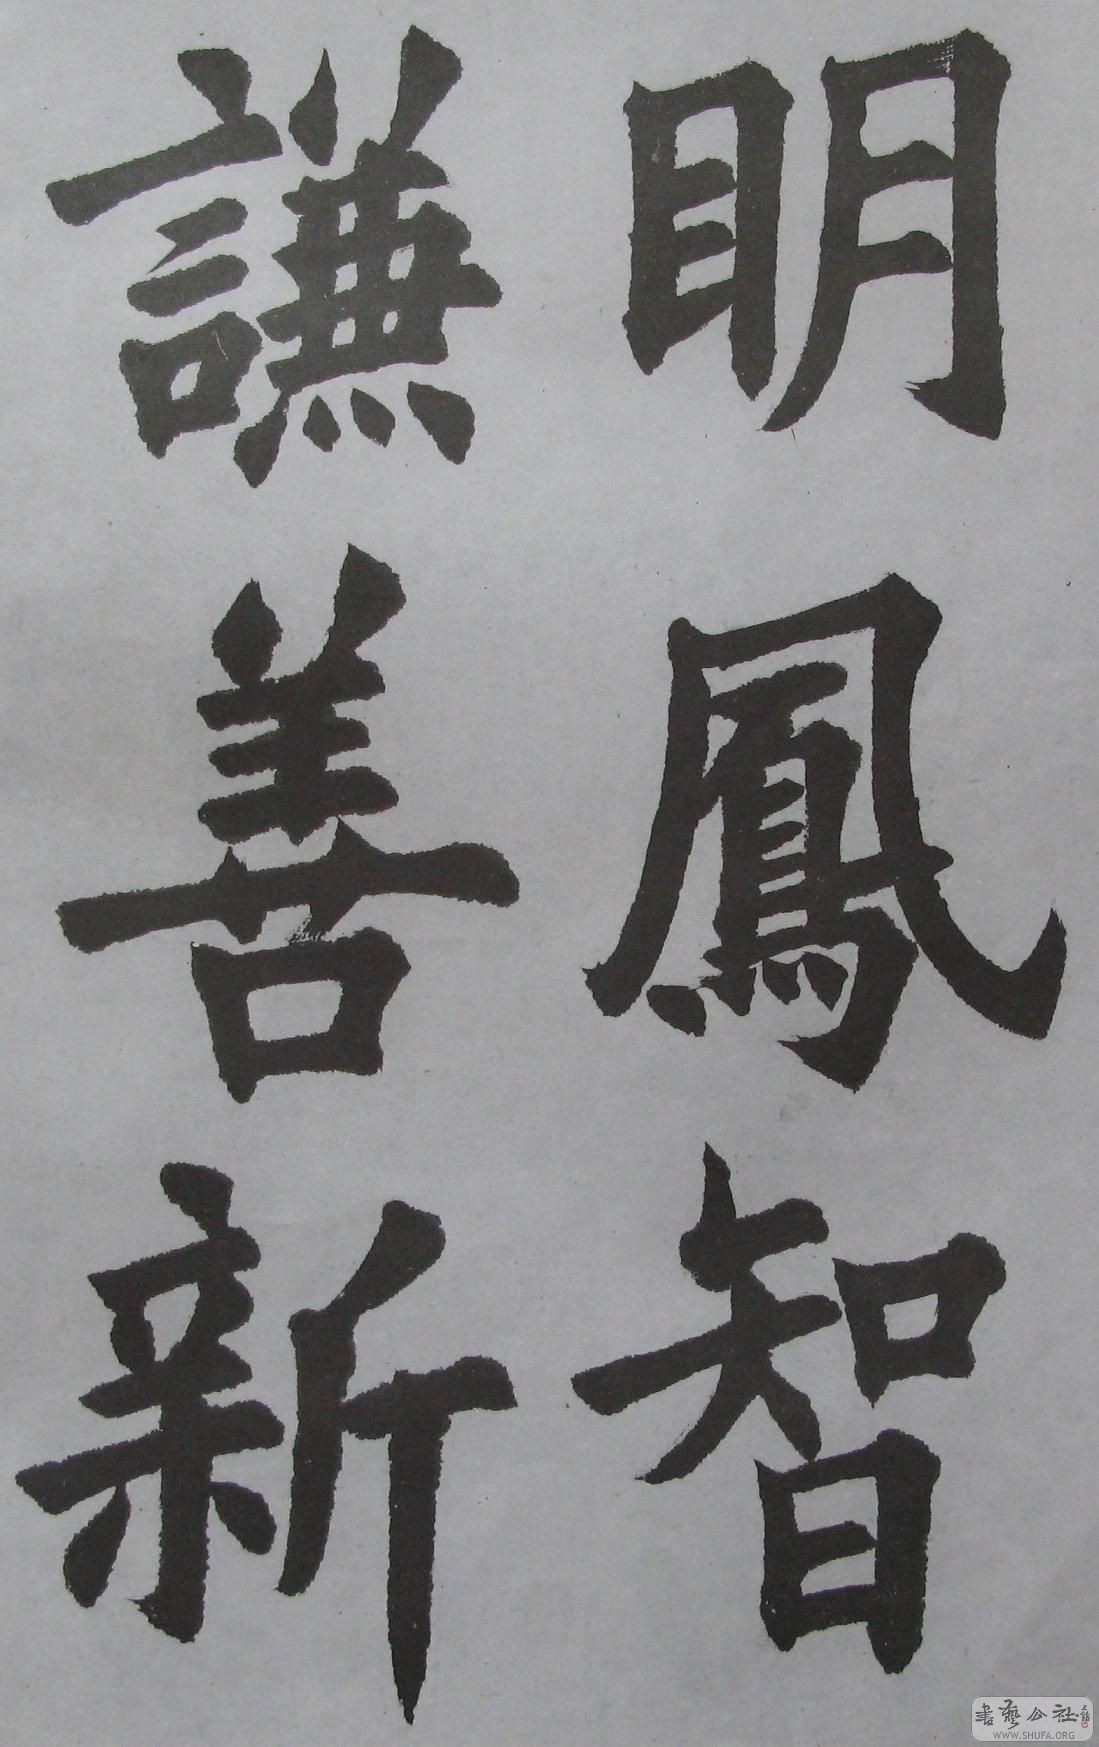 明鳳智
謙善新
書藝公社
WWW.SHUFA.ORG